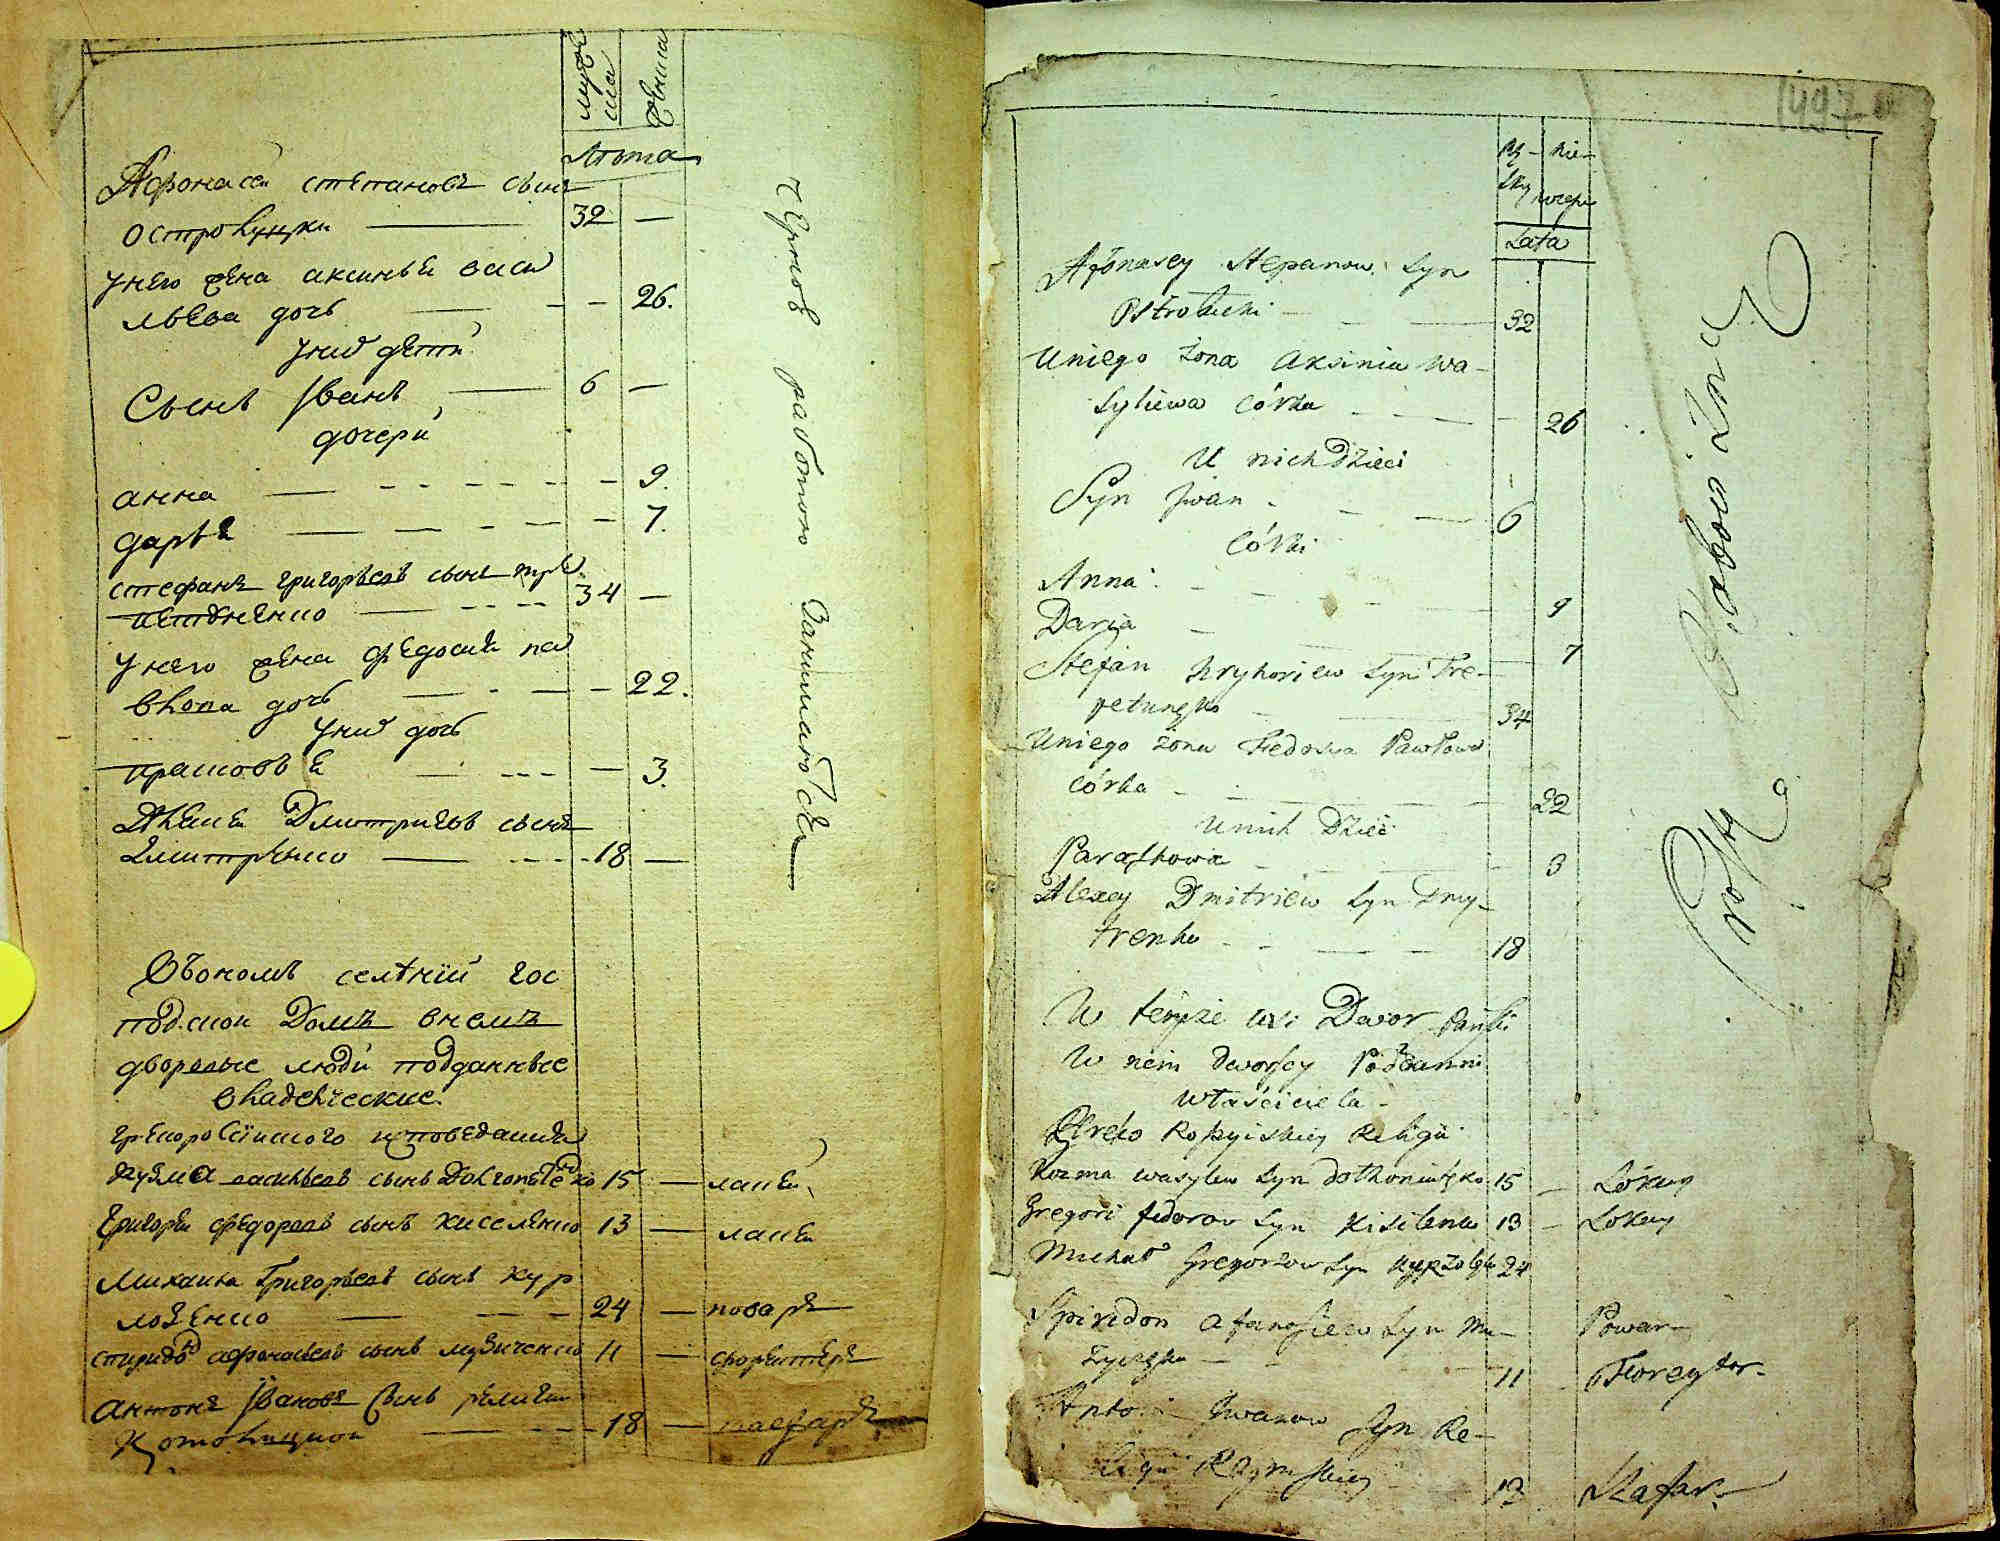 мужеска
женска
Лѣта
Афонасеи степановъ сынъ
островуцки 32 —
унего жена аксинья васи
льева дочь — — 26.
уних дети
Сынъ Іванъ 6 —
дочери
анна — 9.
дарья — 7.
стефанъ григорьевъ сынъ тре
петуненко 34 —
унего жена федосия па
влова дочь — 22.
уних дочь
прасковья — 3.
Алексей Дмитриевъ сынъ
Дмитренко 18 —
чернов работою занимаются
Воономъ селѣнии гос
подскои Домъ внемъ
дворовые люди подданные
владелческие.
грекоросииского исповедания
кузма васильевъ сынъ 15 — лакей
Григореи федоровъ сынъ киселенко 13 — лакеи
Михаила Григорьевъ сынъ кур
ложенко 24 — поваръ
спиридо афонасьевъ сынъ музиченко 11 — форейтеръ
антонъ Івановъ сынъ религи
католицкои 18 —
1497
Lata
Afonasey Stepanow Syn
32
Uniego żona Aksinia Wa-
Syliewa Córka 26
U nich Dzieci
Syn Jwan 6
Córki
Anna 9
Daria 7
Stefan Hryhoriew Syn Tre-
petunęko 34
Uniego żona Fedosia Pawłowa
Córka 22
U nich Dzieci
Paraskowa 3
Alexey Dmitriew Syn Dmy-
trenko 18
W teyże wsi Dwor Pański
W nim dworscy Poddanni
właściciela
Greko Rossyiskiey Religii
Kozma Wasylew Syn 15 — Lokay
Gregori fedorow Syn Kisilenko 13 — Lokay
Michał Gregorżow Syn 24
Spiridon Afanasiew Syn Mu-
zyczęko 11 Powar
Floreytor
Antoni Jwanow Syn Re-
ligii Rzymskiey 13 Szafar
Prostą Robotą